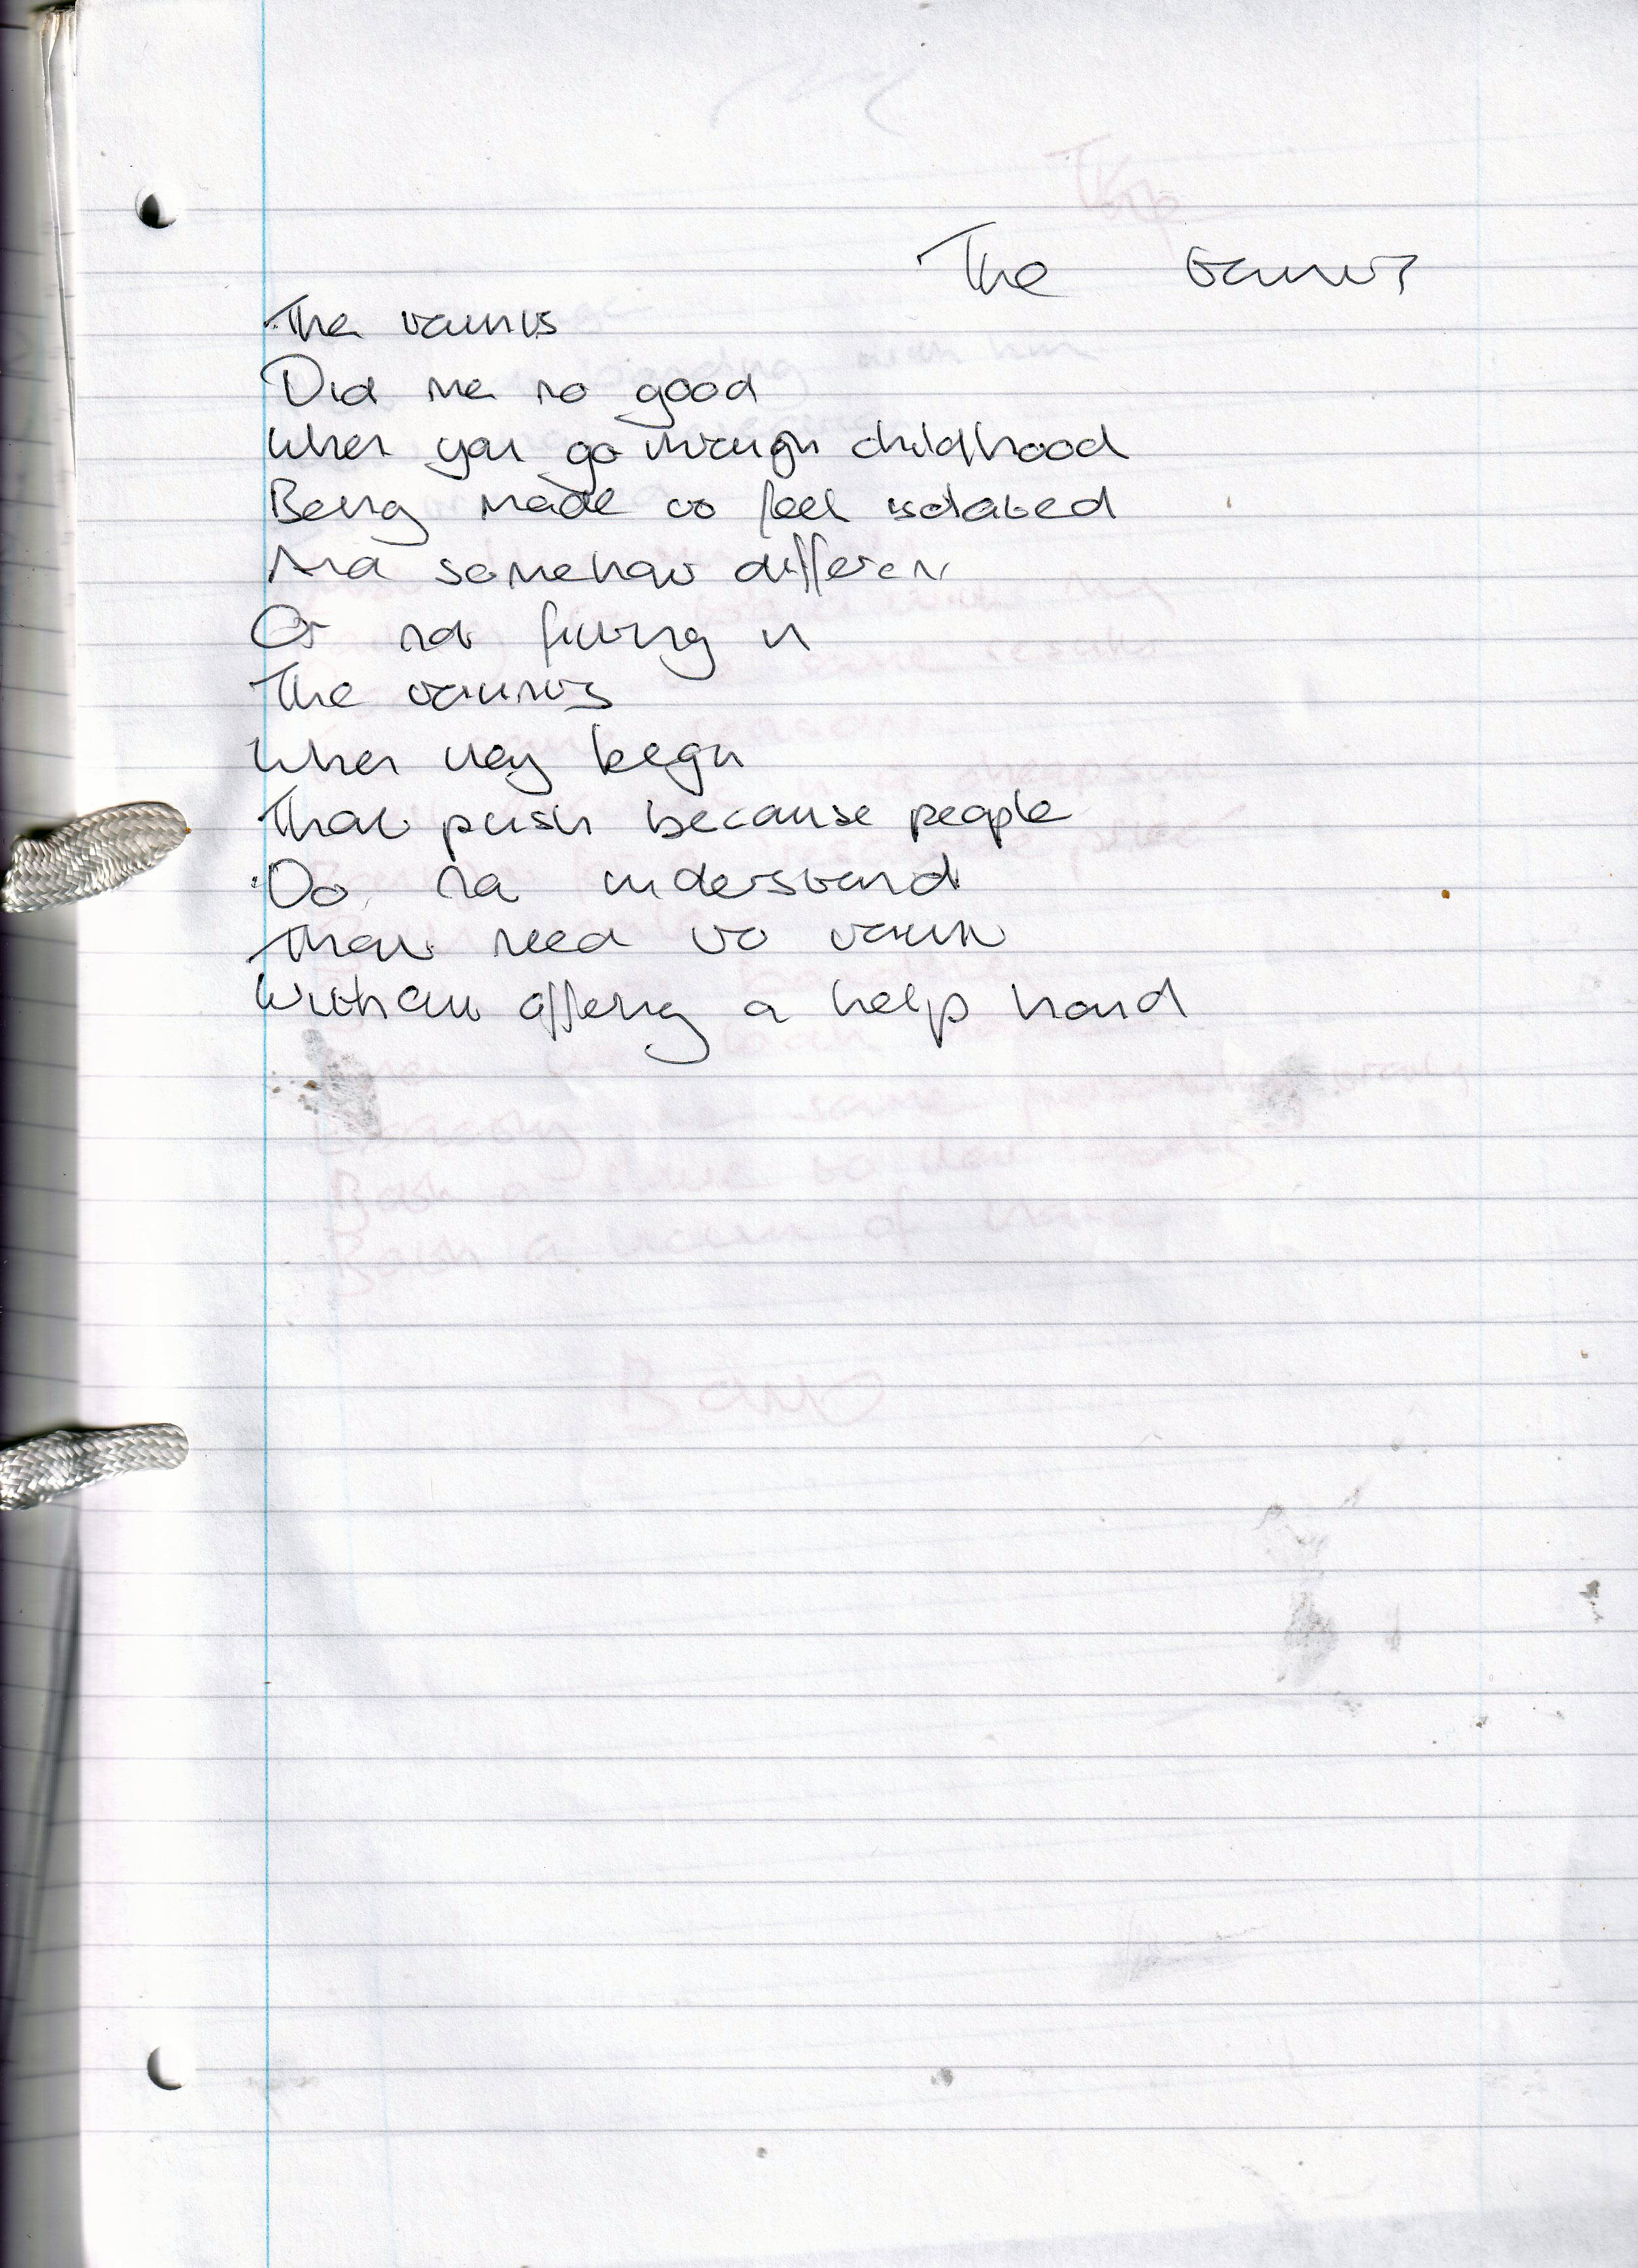 The taunts
The taunts
Did me no good
When you go through childhood
Being made to feel isolated
And somehow different
Or not fitting in
The taunts
When they begin
That push because people
Do no understand
That need to taunt
Without offering a help hand